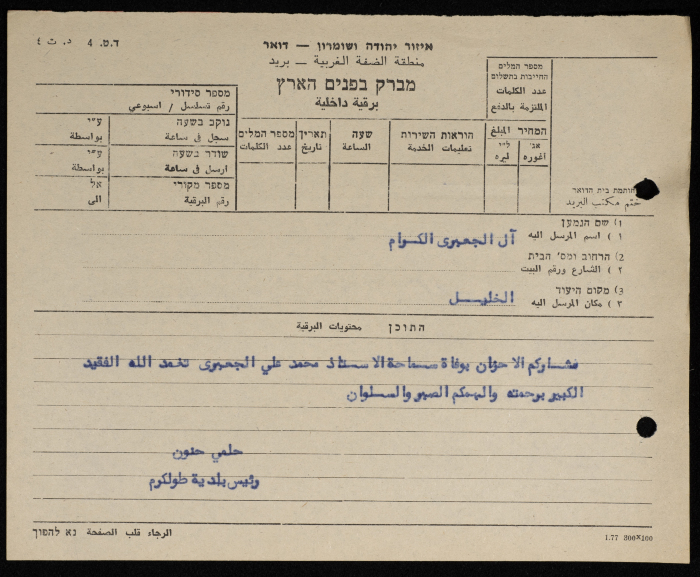 ד.ט. 4 د. ت ٤
איזור יהודה ושומרון – דואר
منطقة الضفة الغربية – بريد
מברק בפנים הארץ
برقية داخلية
מספר המלים
החייבות בתשלום
عدد الكلمات
الملتزمة بالدفع
המחיר المبلغ
אג' ל"י
اغوره ليره
הוראות השירות
تعليمات الخدمة
שעה
الساعة
תאריך
تاريخ
מספר המלים
عدد الكلمات
מספר סידורי
رقم تسلسل / اسبوعي
נוקב בשעה ע"י
سجل في ساعة بواسطة
שודר בשעה ע"י
ارسل في ساعة بواسطة
מספר מקורי אל
رقم البرقية الى
חותמת בית הדואר
ختم مكتب البريد
1) שם הנמען
١ ) اسم المرسل اليه
آل الجعبري الكرام
2) הרחוב ומס' הבית
٢ ) الشارع ورقم البيت
3) מקום היעוד
٣ ) مكان المرسل اليه
الخليل
התוכן محتويات البرقية
نشاركم الاحزان بوفاة سماحة الاستاذ محمد علي الجعبري تغمد الله الفقيد
الكبير برحمته والهمكم الصبر والسلوان
حلمي حنون
رئيس بلدية طولكرم
الرجاء قلب الصفحة נא להפוך
1.77 300×100